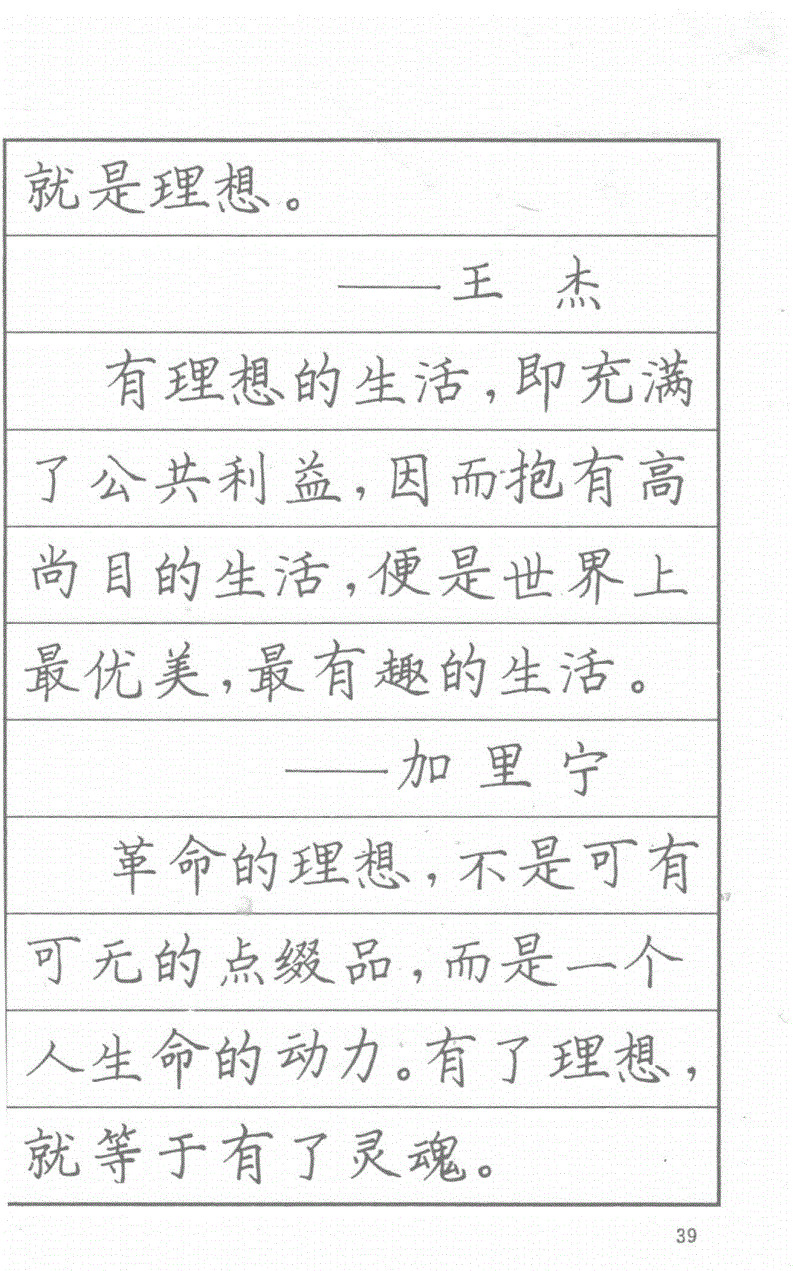 就是理想。
——王 杰
有理想的生活,即充满
了公共利益,因而抱有高
尚目的生活,便是世界上
最优美,最有趣的生活。
——加里宁
革命的理想,不是可有
可无的点缀品,而是一个
人生命的动力。有了理想,
就等于有了灵魂。
39